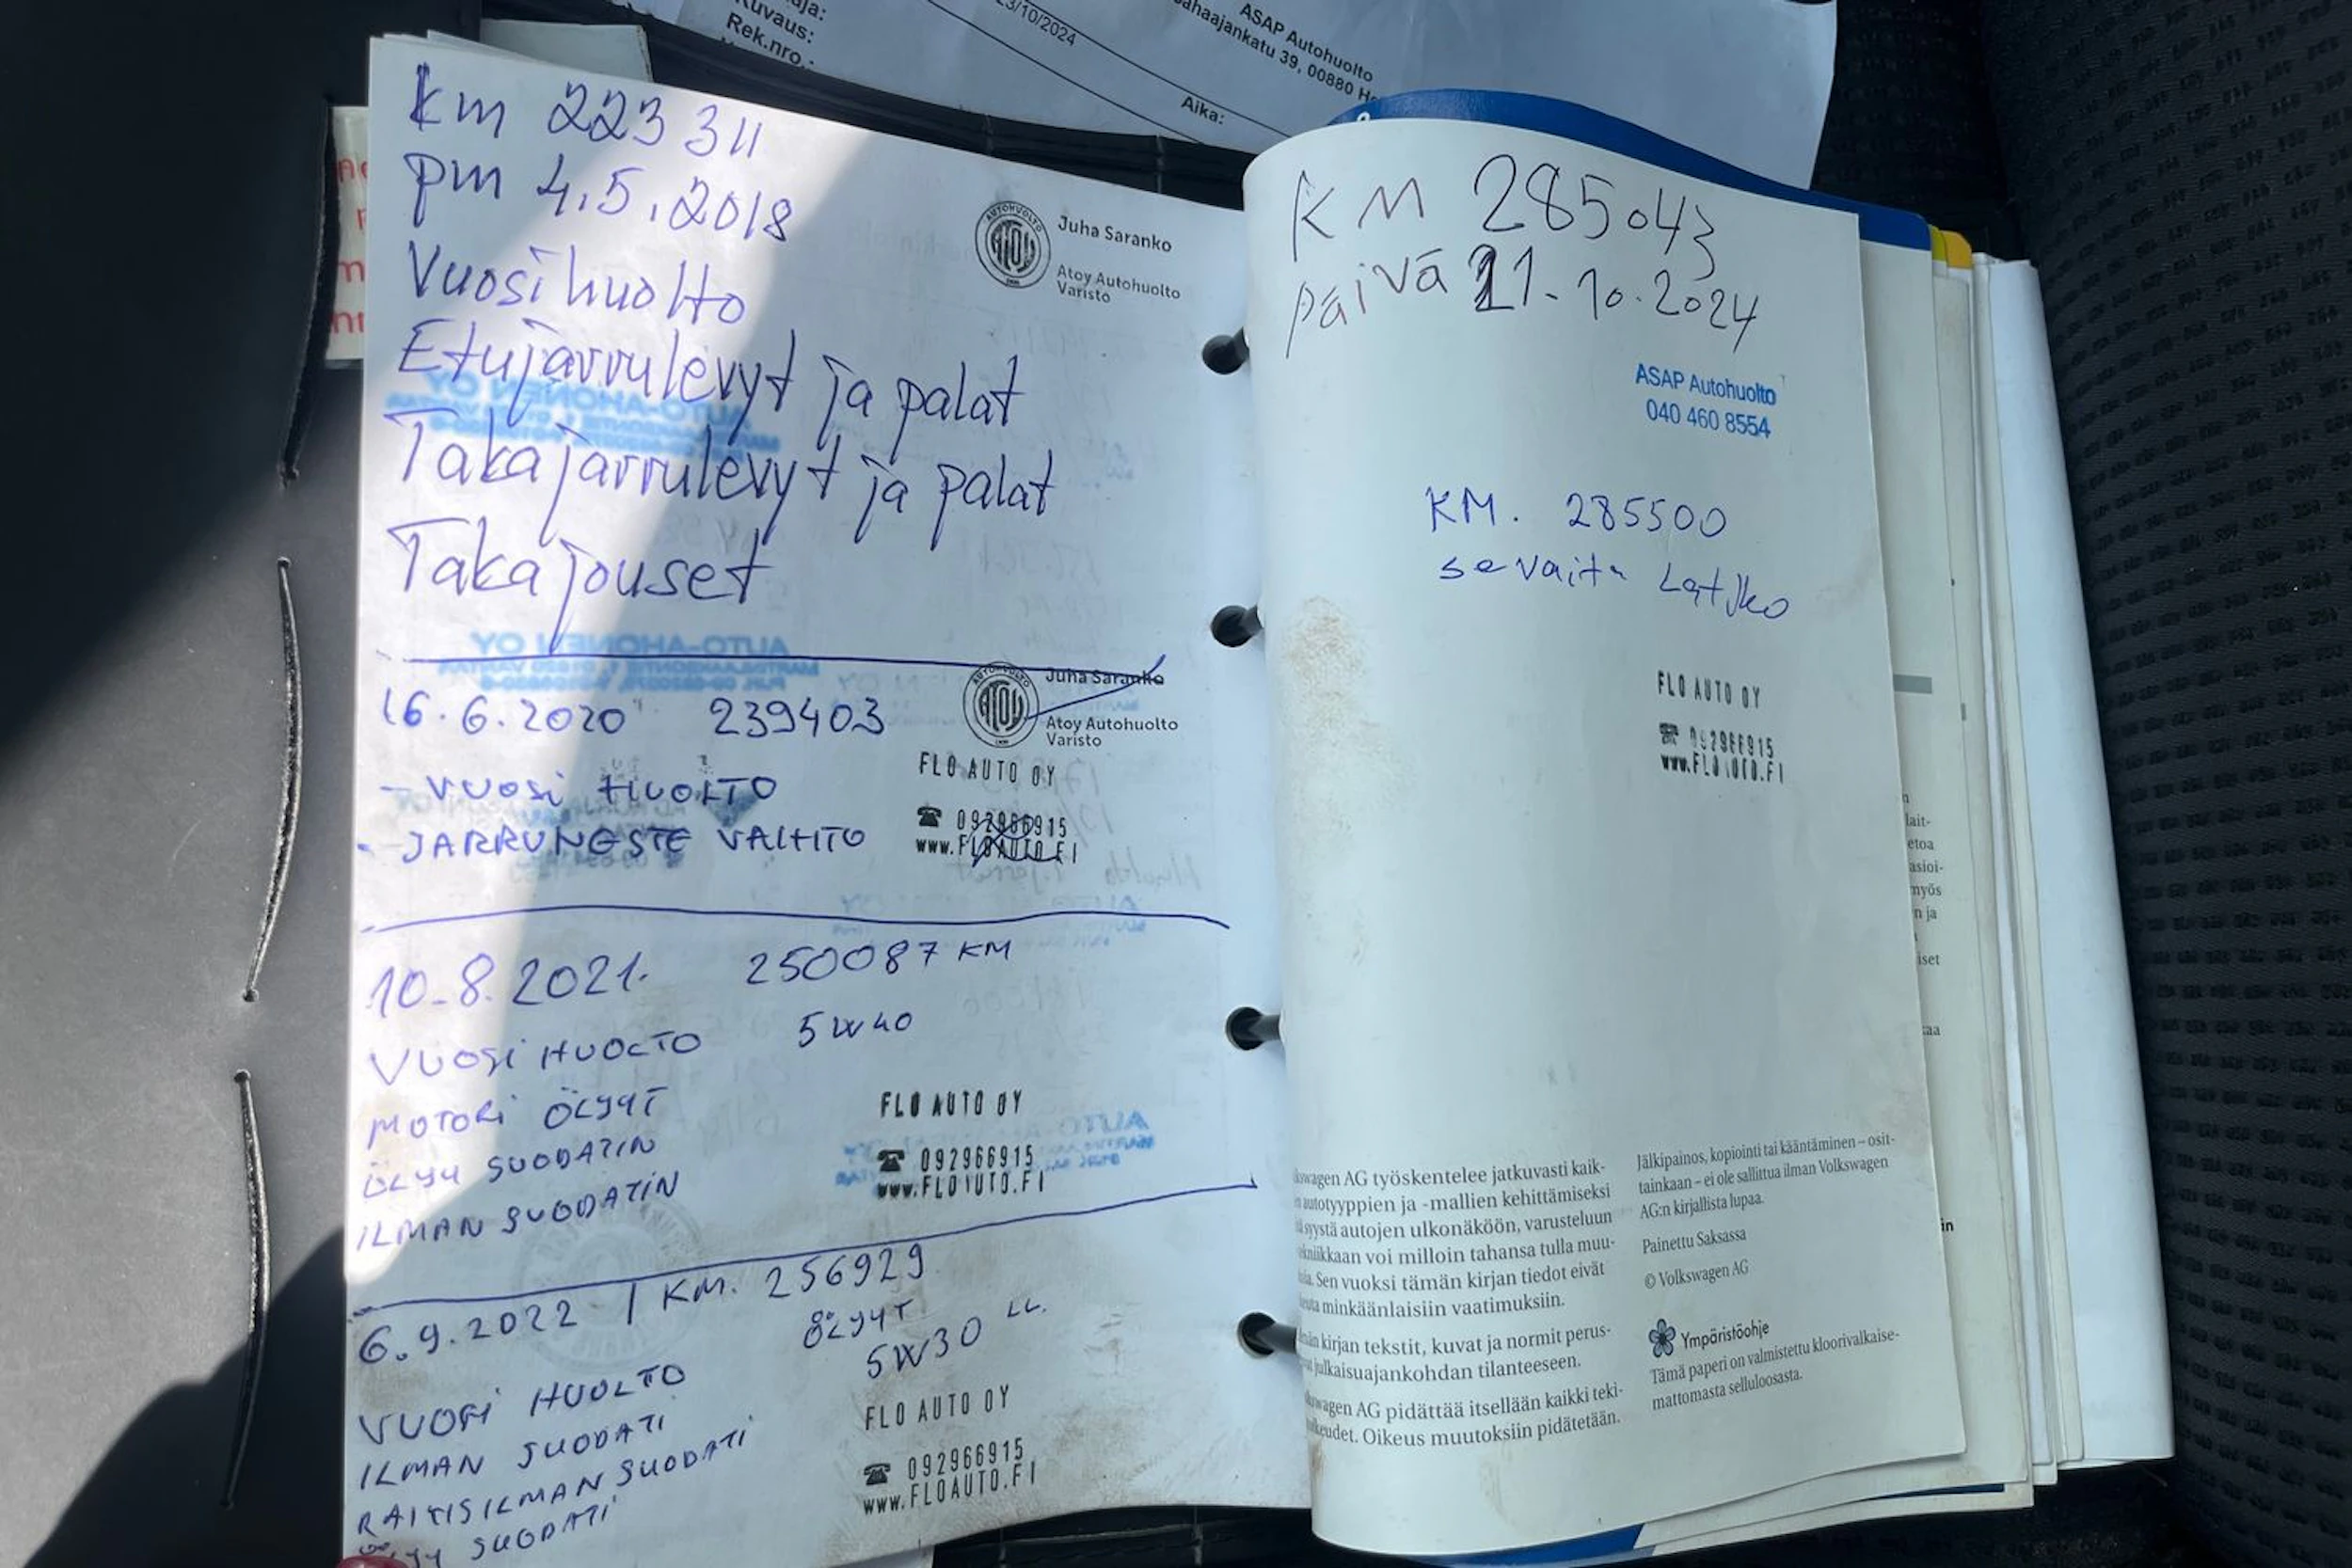 Kuvaus:
Rek.nro.:
23/10/2024
Aika:
ASAP Autohuolto
Sahaajankatu 39, 00880
km 223 311
pm 4.5.2018
Vuosihuolto
Etujarrulevyt ja palat
Takajarrulevyt ja palat
Takajouset
AUTOHUOLTO
ATOY
Juha Saranko
Atoy Autohuolto
Varisto
16.6.2020 239403
- VUOSI HUOLTO
- JARRUNESTE VAIHTO
AUTOHUOLTO
ATOY
Juha Saranko
Atoy Autohuolto
Varisto
FLO AUTO OY
☎ 092966915
www.FLOAUTO.FI
10.8.2021. 250087 KM
VUOSI HUOLTO 5W40
MOTORI ÖLJYT
ÖLJY SUODATIN
ILMAN SUODATIN
FLO AUTO OY
☎ 092966915
www.FLOAUTO.FI
6.9.2022 / KM. 256929
ÖLJYT
5W30 LL.
VUOSI HUOLTO
ILMAN SUODATI
RAITISILMAN SUODATI
ÖLJY SUODATI
FLO AUTO OY
☎ 092966915
www.FLOAUTO.FI
KM 285043
päivä 21.10.2024
ASAP Autohuolto
040 460 8554
KM. 285500
FLO AUTO OY
☎ 092966915
www.FLOAUTO.FI
kswagen AG työskentelee jatkuvasti kaik-
autotyyppien ja -mallien kehittämiseksi
syystä autojen ulkonäköön, varusteluun
tekniikkaan voi milloin tahansa tulla muu-
Sen vuoksi tämän kirjan tiedot eivät
minkäänlaisiin vaatimuksiin.
kirjan tekstit, kuvat ja normit perus-
julkaisuajankohdan tilanteeseen.
swagen AG pidättää itsellään kaikki teki-
keudet. Oikeus muutoksiin pidätetään.
Jälkipainos, kopiointi tai kääntäminen – osit-
tainkaan – ei ole sallittua ilman Volkswagen
AG:n kirjallista lupaa.
Painettu Saksassa
© Volkswagen AG
Ympäristöohje
Tämä paperi on valmistettu kloorivalkaise-
mattomasta selluloosasta.
lait-
etoa
asioi-
myös
n ja
iset
kaa
in